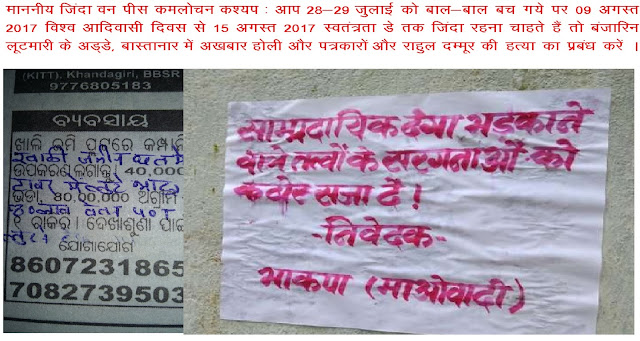 माननीय जिंदा वन पीस कमलोचन कश्यप : आप 28–29 जुलाई को बाल–बाल बच गये पर 09 अगस्त
2017 विश्व आदिवासी दिवस से 15 अगस्त 2017 स्वतंत्रता डे तक जिंदा रहना चाहते हैं तो बंजारिन
लूटमारी के अड्डे, बास्तानार में अखबार होली और पत्रकारों और राहुल दम्मूर की हत्या का प्रबंध करें ।
(KITT), Khandagiri, BBSR
9776805183
ବ୍ୟବସାୟ
ଖାଲି ଜମି
ଉପକରଣ 40,000
ଭଡ଼ା. 40,00,000 ଅଗ୍ରୀମ
ଯୋଗାଯୋଗ
8607231865
7082739503
साम्प्रदायिक दंगा भड़काने
वाले तत्वों के सरगनाओं को
कठोर सजा दें !
-निवेदक-
भाकपा (माओवादी)